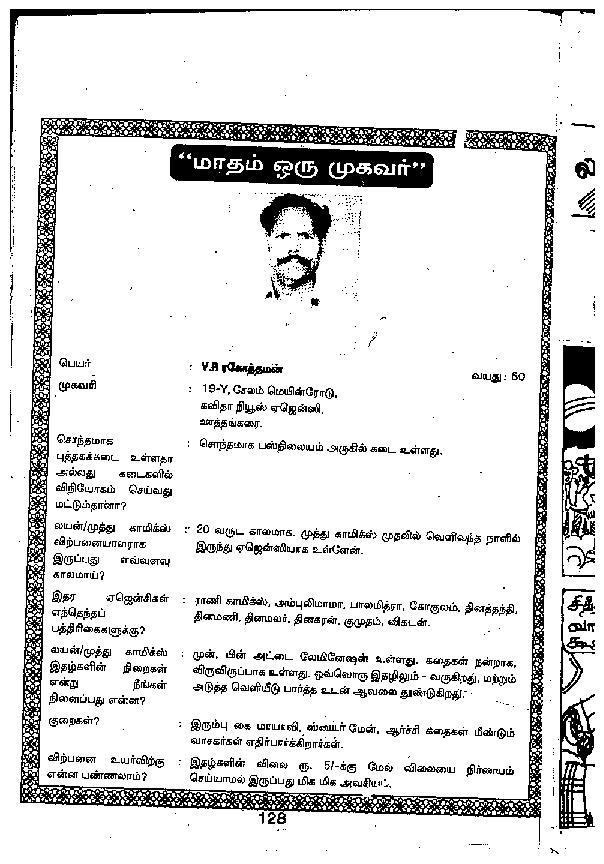 "மாதம் ஒரு முகவர்"
பெயர் : V.R ரகோத்தமன் வயது : 60
முகவரி : 19-Y, சேலம் மெயின்ரோடு,
கவிதா நியூஸ் ஏஜென்ஸி,
ஊத்தங்கரை.
சொந்தமாக : சொந்தமாக பஸ்நிலையம் அருகில் கடை உள்ளது.
புத்தகக்கடை உள்ளதா
அல்லது கடைகளில்
விநியோகம் செய்வது
மட்டும்தானா?
லயன்/முத்து காமிக்ஸ் : 20 வருட காலமாக. முத்து காமிக்ஸ் முதலில் வெளிவந்த நாளில்
விற்பனையாளராக இருந்து ஏஜென்ஸியாக உள்ளேன்.
இருப்பது எவ்வளவு
காலமாய்?
இதர ஏஜென்சிகள் : ராணி காமிக்ஸ், அம்புலிமாமா, பாலமித்ரா, கோகுலம், தினத்தந்தி,
எந்தெந்தப் தினமணி, தினமலர், தினகரன், குமுதம், விகடன்.
பத்திரிகைகளுக்கு?
லயன்/முத்து காமிக்ஸ் : முன், பின் அட்டை லேமினேஷன் உள்ளது. கதைகள் நன்றாக,
இதழ்களின் நிறைகள் விருவிருப்பாக உள்ளது. ஒவ்வொரு இதழிலும் - வருகிறது, மற்றும்
என்று நீங்கள் அடுத்த வெளியீடு பார்த்த உடன் ஆவலை தூண்டுகிறது.
நினைப்பது என்ன?
குறைகள்? : இரும்பு கை மாயாவி, ஸ்பைடர் மேன், ஆர்ச்சி - கதைகள் மீண்டும்
வாசகர்கள் எதிர்பார்க்கிறார்கள்.
விற்பனை உயர்விற்கு : இதழ்களின் விலை ரூ. 5/-க்கு மேல் விலையை நிர்ணயம்
என்ன பண்ணலாம்? செய்யாமல் இருப்பது மிக மிக அவசியம்.
128